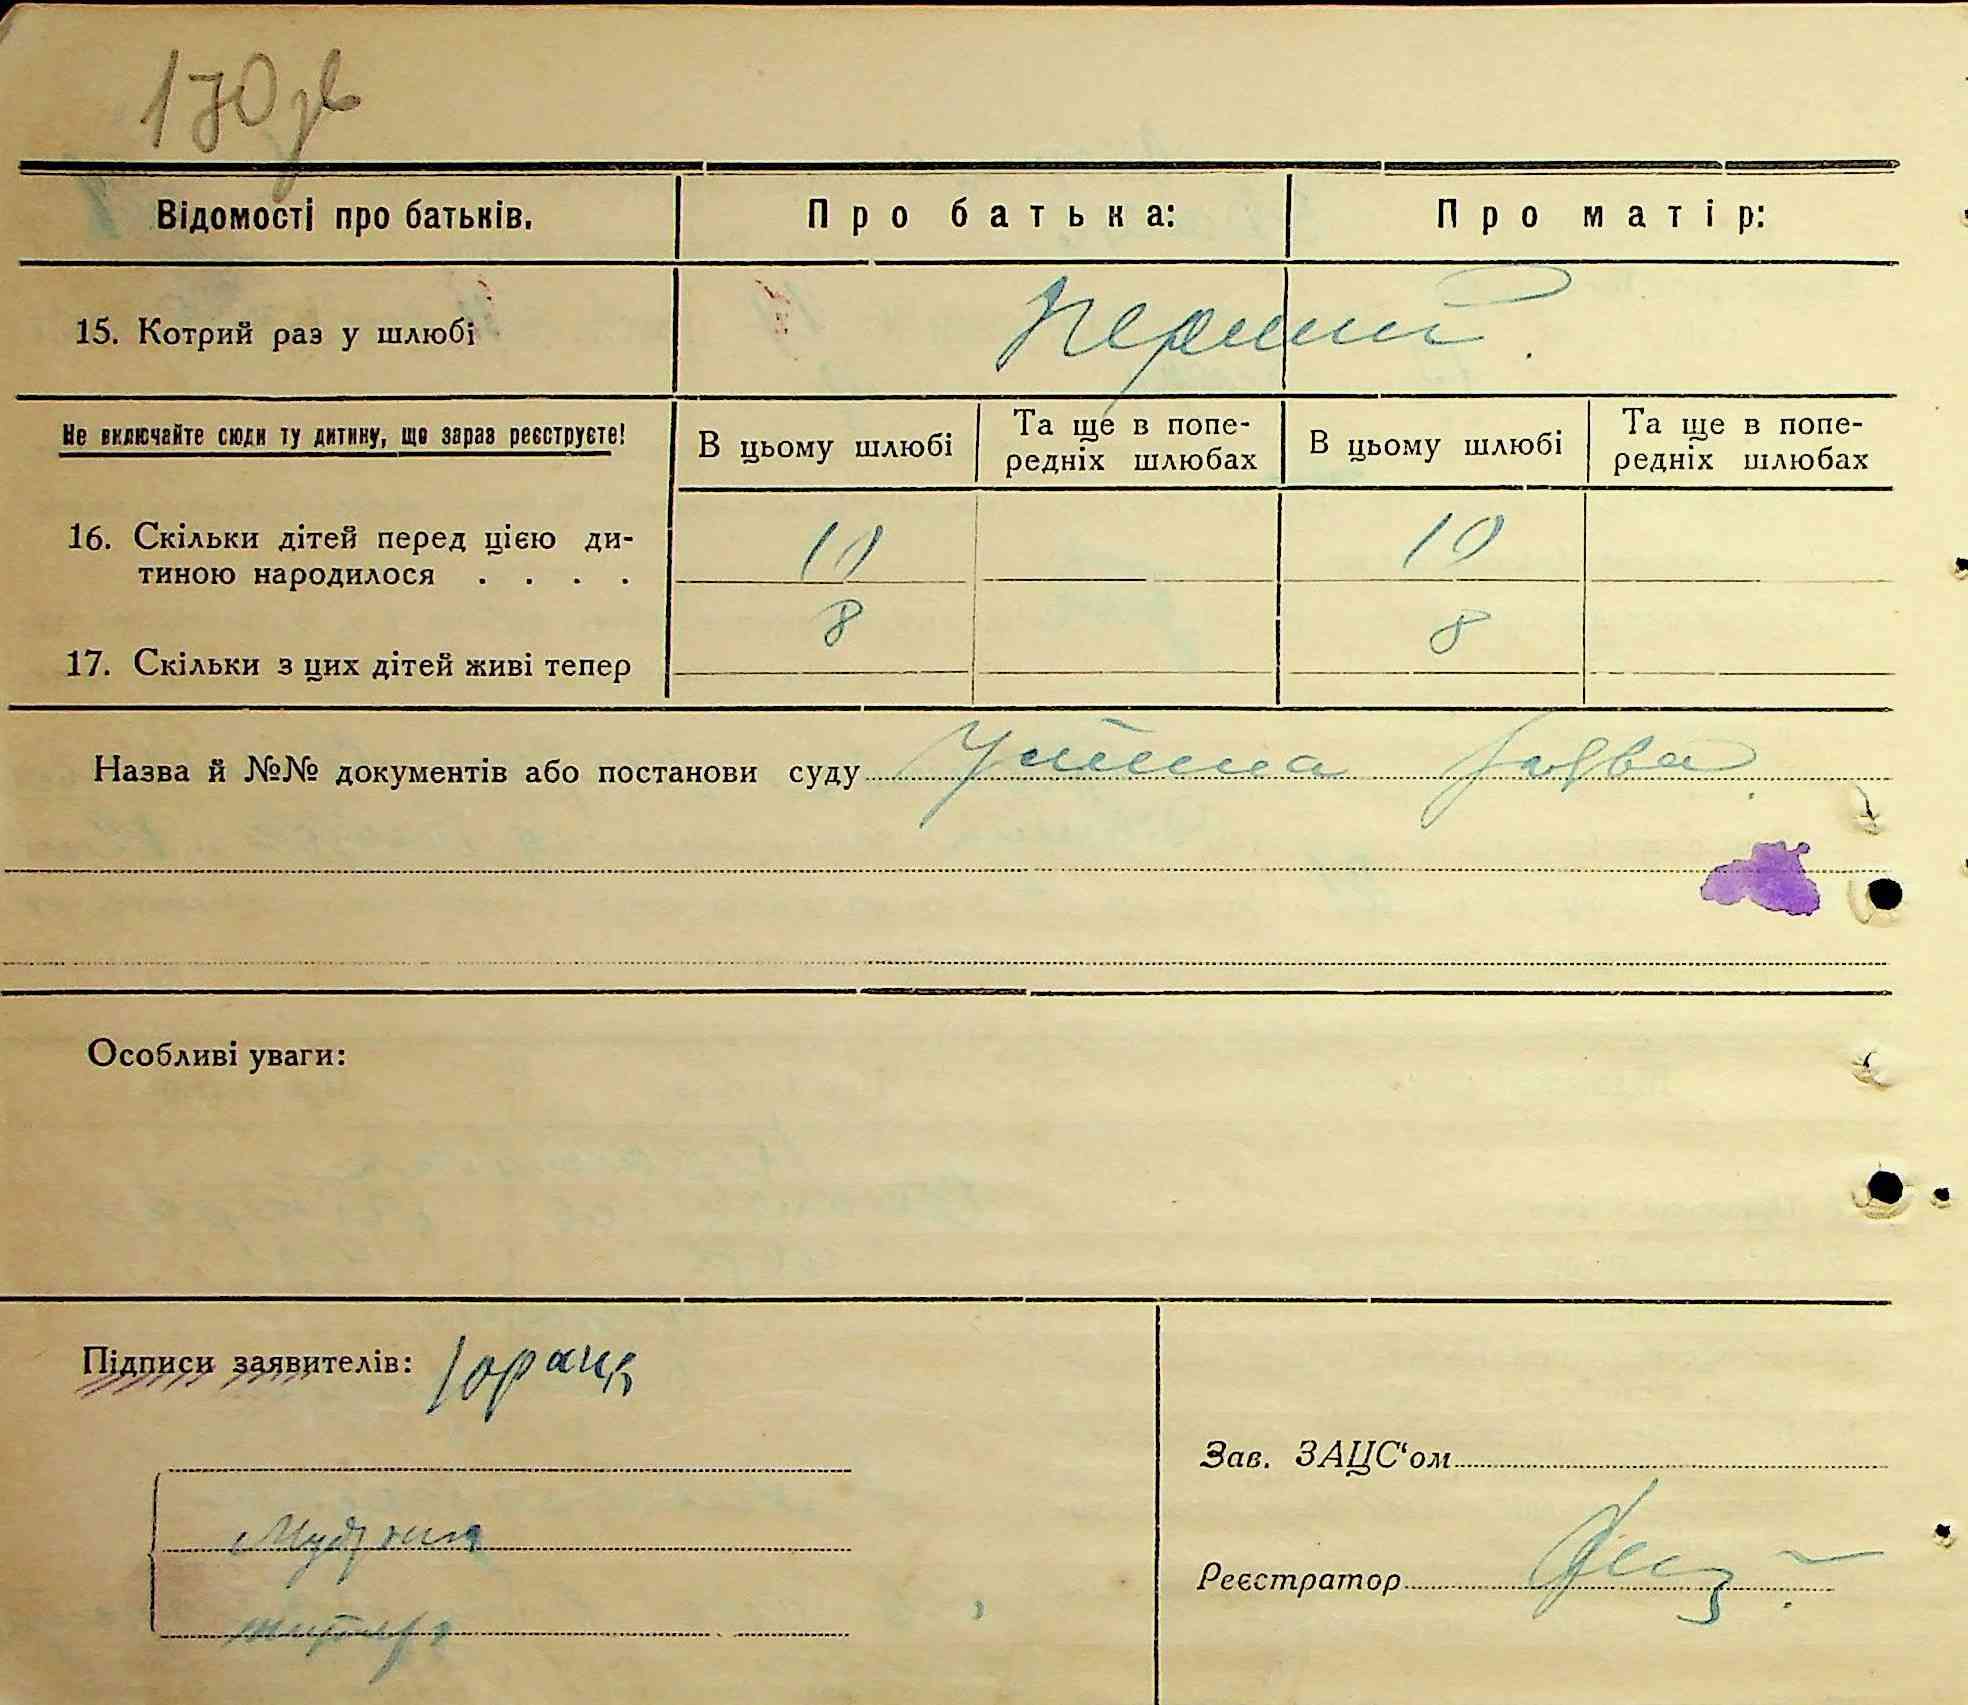 170 зв
Відомості про батьків.
Про батька:
Про матір:
15. Котрий раз у шлюбі
перший.
Не включайте сюди ту дитину, що зараз реєструєте!
В цьому шлюбі
Та ще в попе-
редніх шлюбах
В цьому шлюбі
Та ще в попе-
редніх шлюбах
16. Скільки дітей перед цією ди-
тиною народилося . . . .
10
10
17. Скільки з цих дітей живі тепер
8
8
Назва й №№ документів або постанови суду Усна заява.
Особливі уваги:
Підписи заявителів:
Зав. ЗАЦС‘ом
Реєстратор